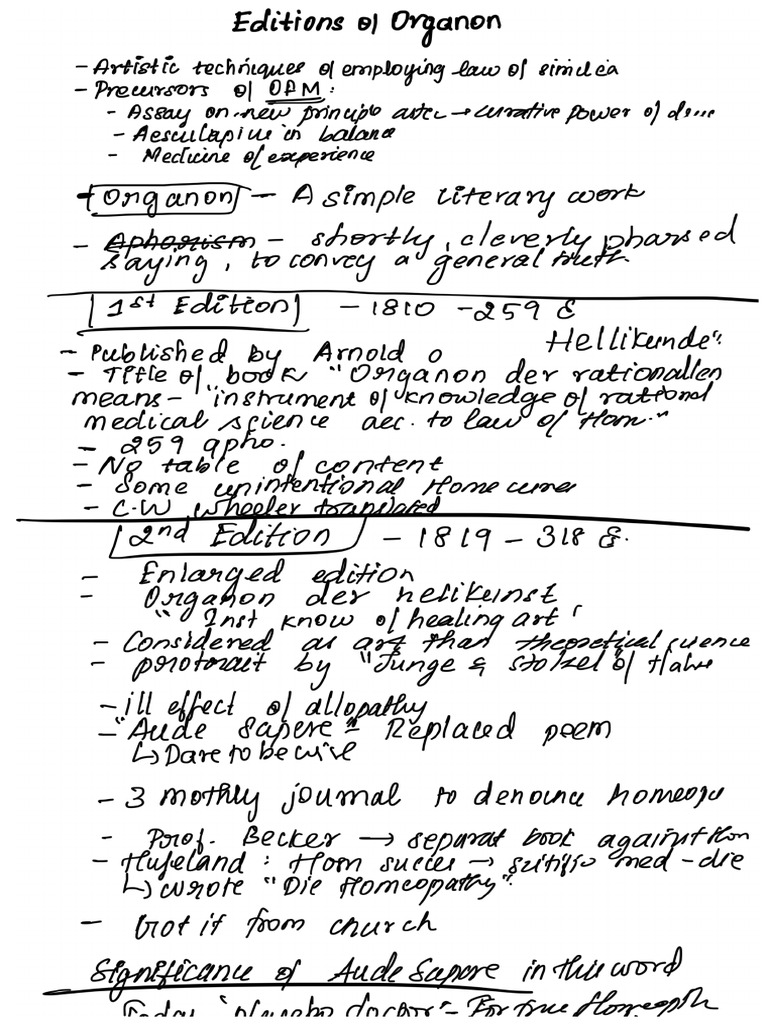 Editions of Organon
- Artistic techniques of employing law of similia
- Precursors of OAM:
- Assay on new principle → curative power of
- Aesculapius in balance
- Medicine of experience
+ Organon - A simple literary work
- Aphorism - shortly, cleverly pharsed
saying, to convey a general truth.
1st Edition - 1810 - 259 &
- Published by Arnold o
Hellikunde".
- Title of book "Organon der rationallen
means - "instrument of knowledge of rational
medical science acc. to law of Hom."
- 259 apho.
- No table of content
- Some unintentional Home cures
- C.W wheeler translated
2nd Edition - 1819 - 318 &.
- Enlarged edition
- Organon der helikunst
"Inst know of healing art"
- Considered as art than theoretical science
- protorait by "Junge & stolzel of
- ill effect of allopathy
- "Aude Sapere" = Replaced poem
↳ Dare to be wise
- 3 mothly journal to denounce homeopa
- Prof. Becker → separat book against Hom
- Hufeland: Hom succes → med - die
↳ wrote "Die Homeopathy".
- Got it from church
Significance of Aude Sapere in this word
Today "placebo doctor" - For true Homeopth